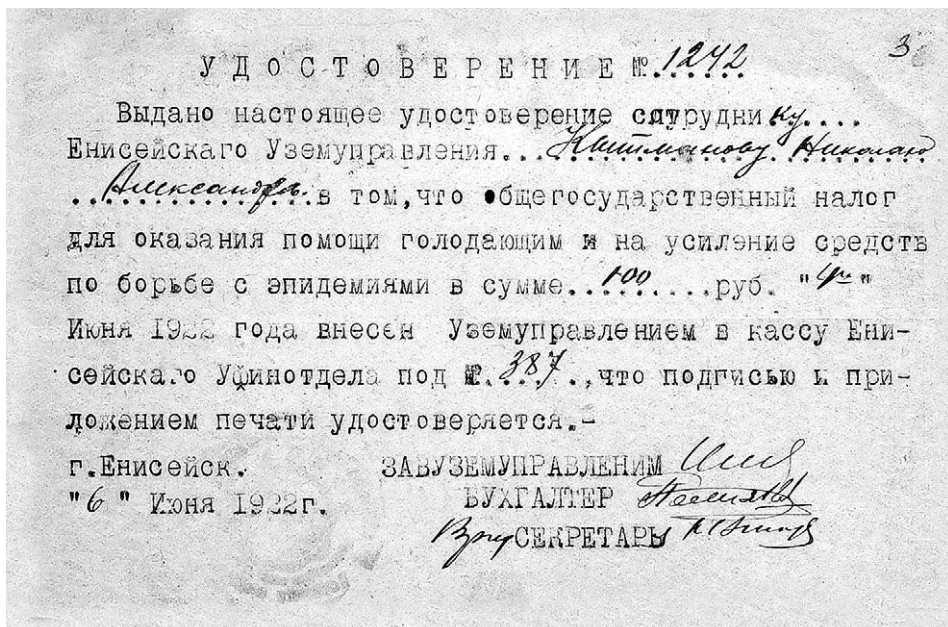 3
УДОСТОВЕРЕНИЕ №.1242
Выдано настоящее удостоверение сотруднику....
Енисейскаго Уземуправления... Кытманову Николаю
Александр. в том,что общегосударственный налог
для оказания помощи голодающим и на усиление средств
по борьбе с эпидемиями в сумме..100......руб. "4го"
Июня 1922 года внесен Уземуправлением в кассу Ени-
сейскаго Уфинотдела под №.387.,что подписью и при-
ложением печати удостоверяется.-
г.Енисейск. ЗАВУЗЕМУПРАВЛЕНИМ
"6" Июня 1922г. БУХГАЛТЕР
Врид СЕКРЕТАРЬ